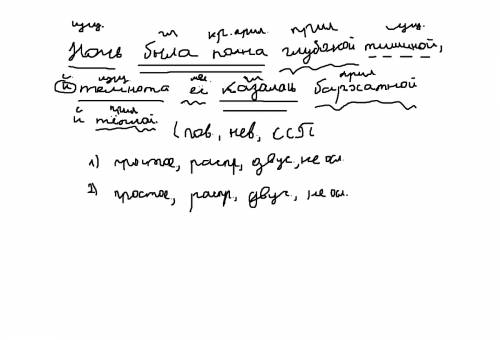 сущ. гл кр. прил. прил сущ.
Ночь была полна глубокой тишиной,
сущ мес. гл прил
и темнота её казалась бархатной
с прил
и тёплой. (пов, нев, ССП
1) простое, распр, двус, не осл.
2) простое, распр, двус., не осл.